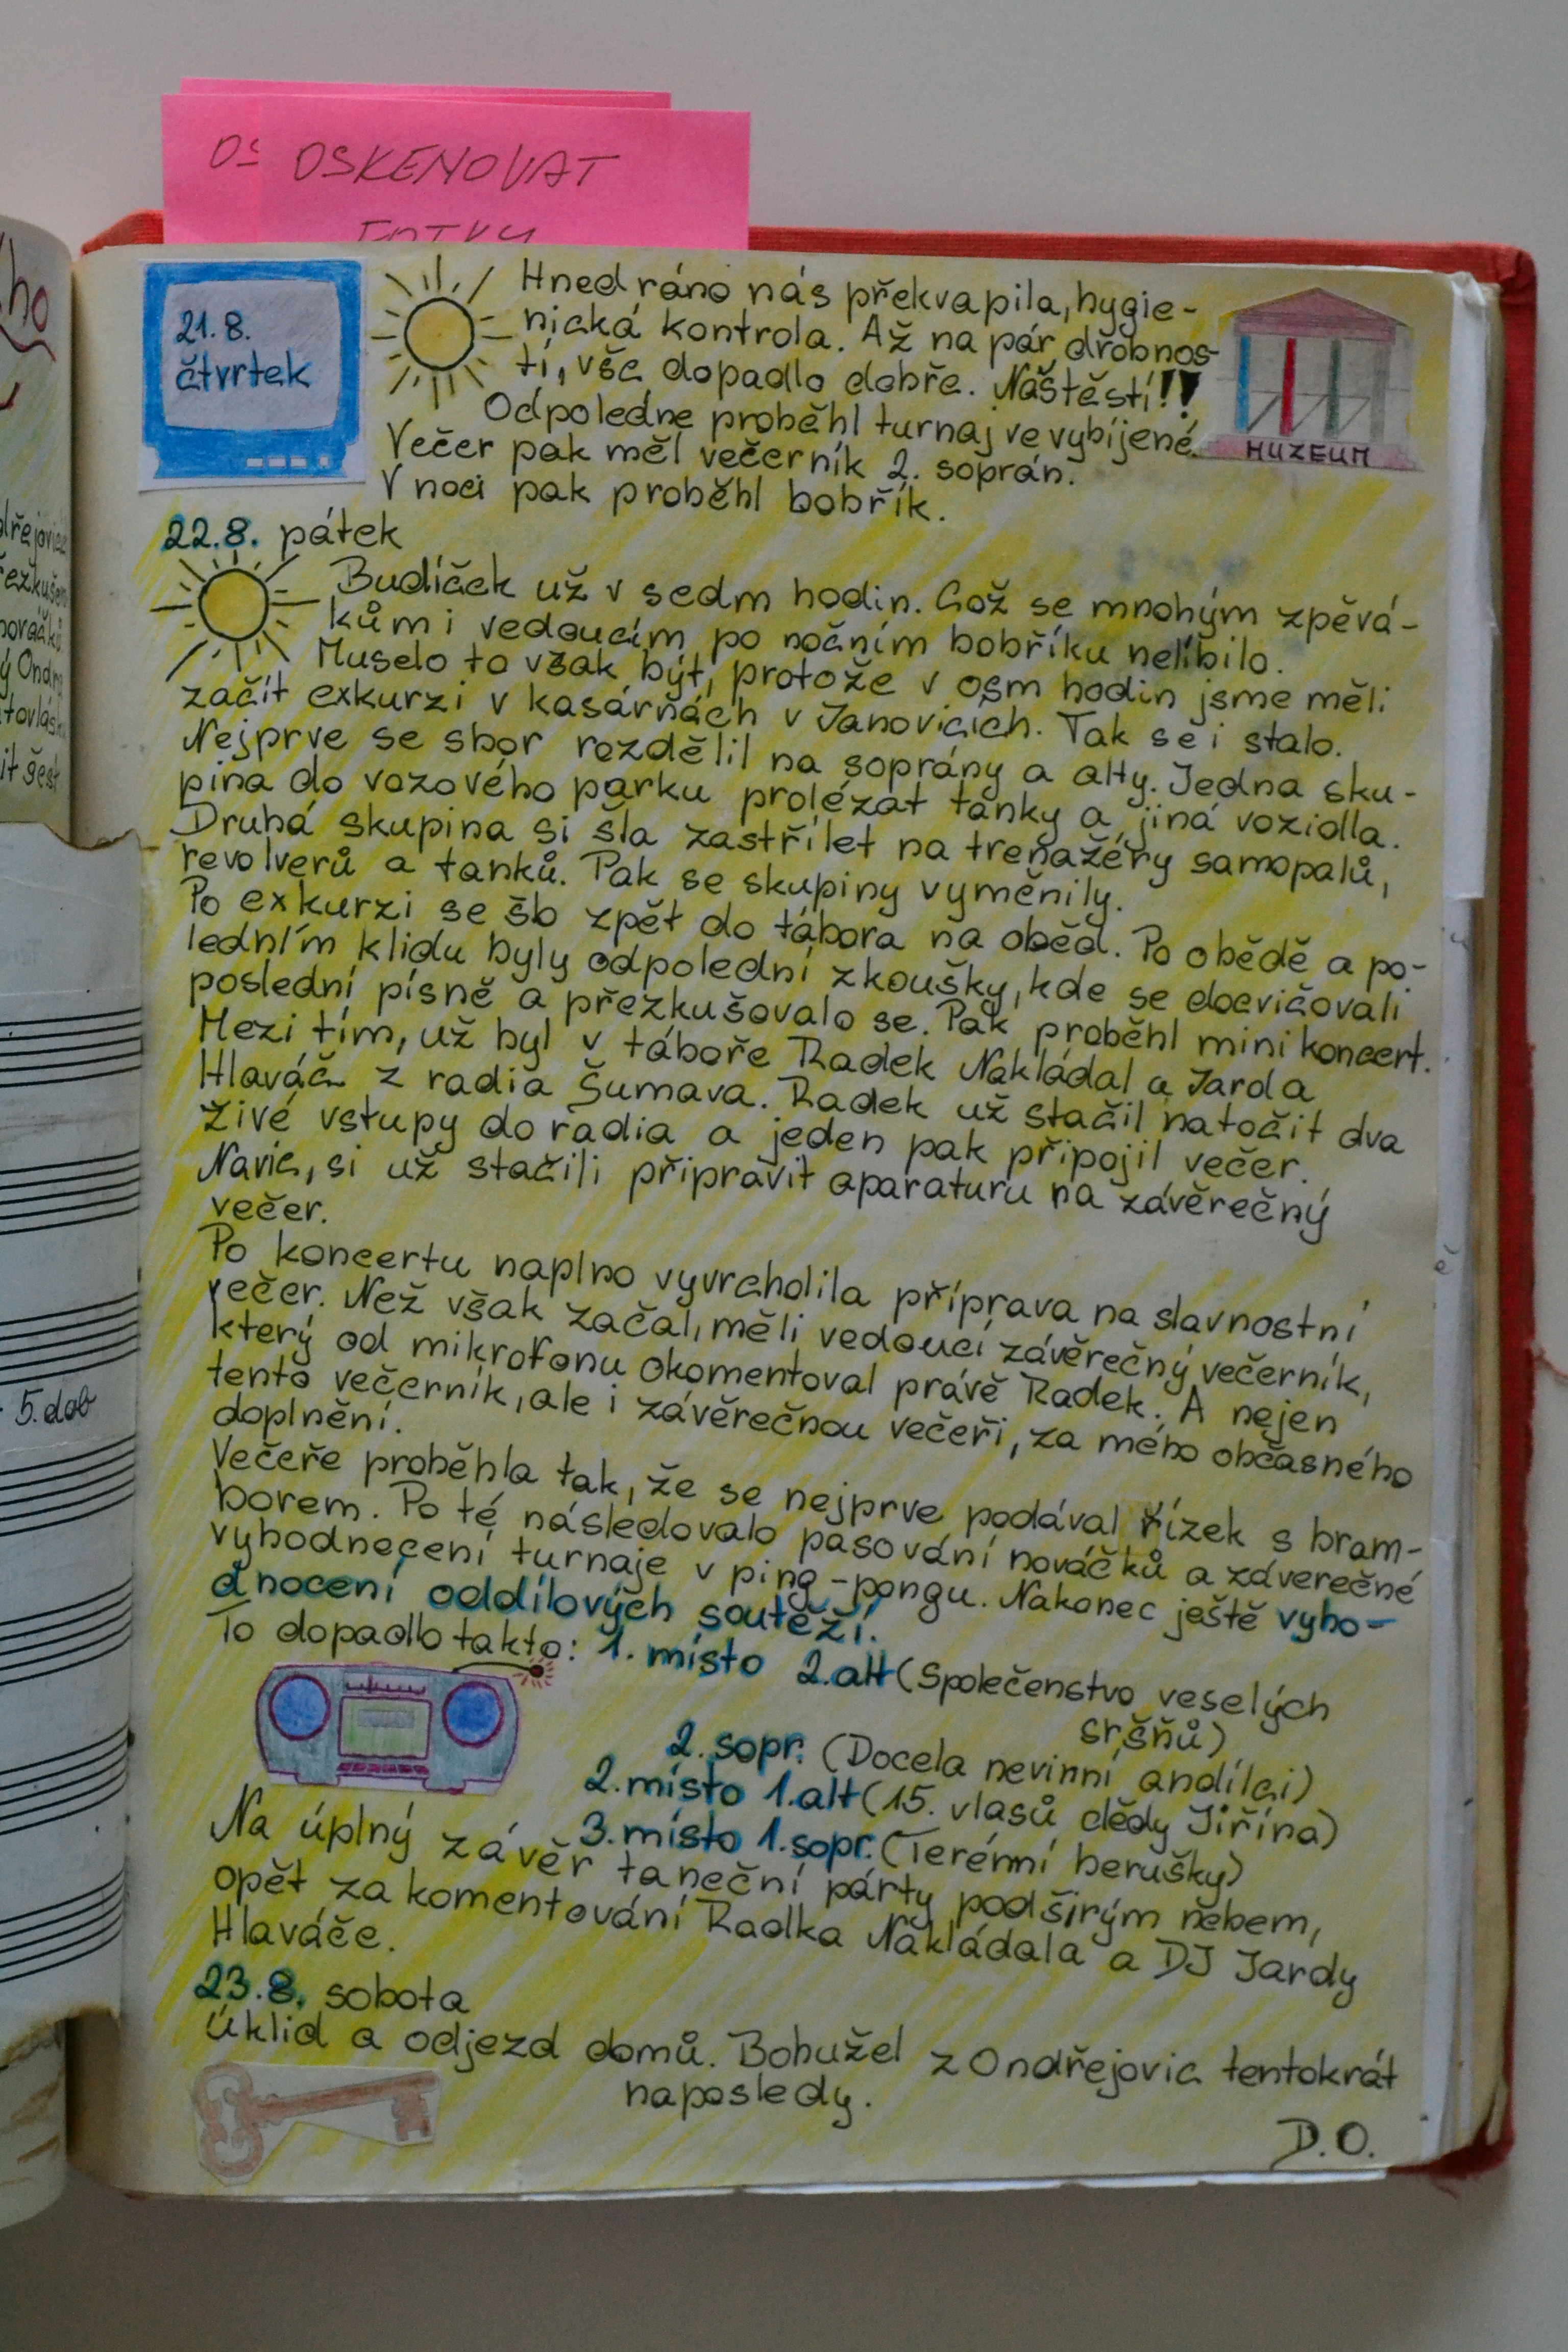 OSKENOVAT
FOTKY
21.8.
čtvrtek
Hned ráno nás překvapila, hygie-
nická kontrola. Až na pár drobnos-
tí, vše dopadlo dobře. Naštěstí!!
Odpoledne proběhl turnaj ve vybíjené.
Večer pak měl večerník 2. soprán.
V noci pak proběhl bobřík.
MUZEUM
22.8. pátek
Budíček už v sedm hodin. Což se mnohým zpěvá-
kům i vedoucím po nočním bobříku nelíbilo.
Muselo to však být, protože v osm hodin jsme měli
začít exkurzi v kasárnách v Janovicích. Tak se i stalo.
Nejprve se sbor rozdělil na soprány a alty. Jedna sku-
pina do vozového parku prolézat tanky a jiná vozidla.
Druhá skupina si šla zastřílet na trenažéry samopalů,
revolverů a tanků. Pak se skupiny vyměnily.
Po exkurzi se šlo zpět do tábora na oběd. Po obědě a po-
ledním klidu byly odpolední zkoušky, kde se docvičovali
poslední písně a přezkušovalo se. Pak proběhl mini koncert.
Mezi tím, už byl v táboře Radek Nakládal a Jarda
Hlaváč z radia Šumava. Radek už stačil natočit dva
živé vstupy do radia a jeden pak připojil večer.
Navíc, si už stačili připravit aparaturu na závěrečný
večer.
Po koncertu naplno vyvrcholila příprava na slavnostní
večer. Než však začal, měli vedoucí závěrečný večerník,
který od mikrofonu okomentoval právě Radek. A nejen
tento večerník, ale i závěrečnou večeři, za mého občasného
doplnění.
Večeře proběhla tak, že se nejprve podával řízek s bram-
borem. Po té následovalo pasování nováčků a záverečné
vyhodnecení turnaje v ping-pongu. Nakonec ještě vyho-
dnocení oddílových soutěží.
To dopadlo takto: 1. místo 2.alt (Společenstvo veselých
sršňů)
2. sopr. (Docela nevinní andílci)
2. místo 1.alt (15. vlasů dědy Jiřína)
3. místo 1.sopr. (Terénní berušky)
Na úplný závěr taneční párty pod širým nebem,
opět za komentování Radka Nakládala a DJ Jardy
Hlaváče.
23.8. sobota
Úklid a odjezd domů. Bohužel z Ondřejovic tentokrát
naposledy.
D.O.
5. dob